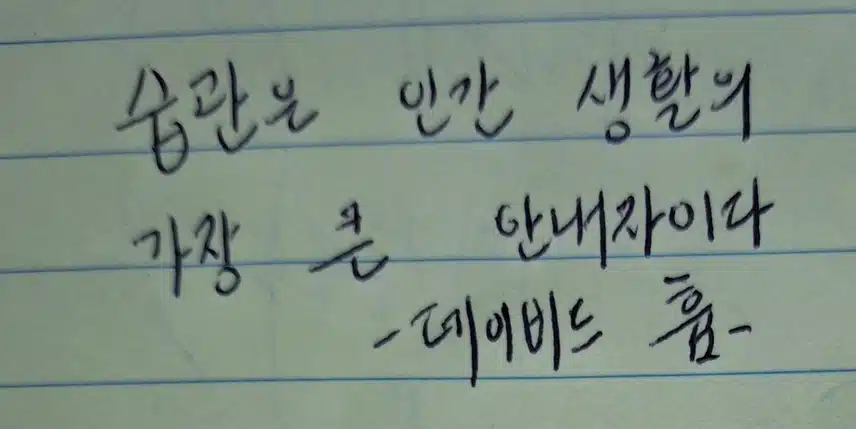 습관은 인간 생활의
가장 큰 안내자이다
-데이비드 흄-